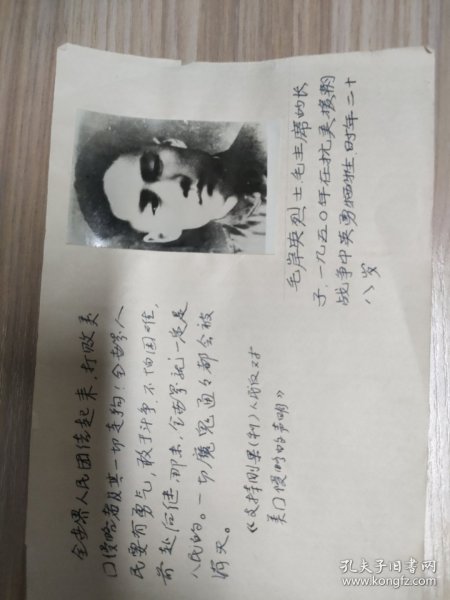 毛岸英烈士毛主席的长
子,一九五〇年在抗美援朝
战争中英勇牺牲,时年二十
八岁
全世界人民团结起来,打败美
国侵略者及其一切走狗!全世界人
民要有勇气,敢于斗争,不怕困难,
前赴后继,那末,全世界就一定是
人民的。一切魔鬼通々都会被
消灭。
《支持刚果(利)人民反对
美国侵略的声明》
孔夫子旧书网
www.kongfz.com